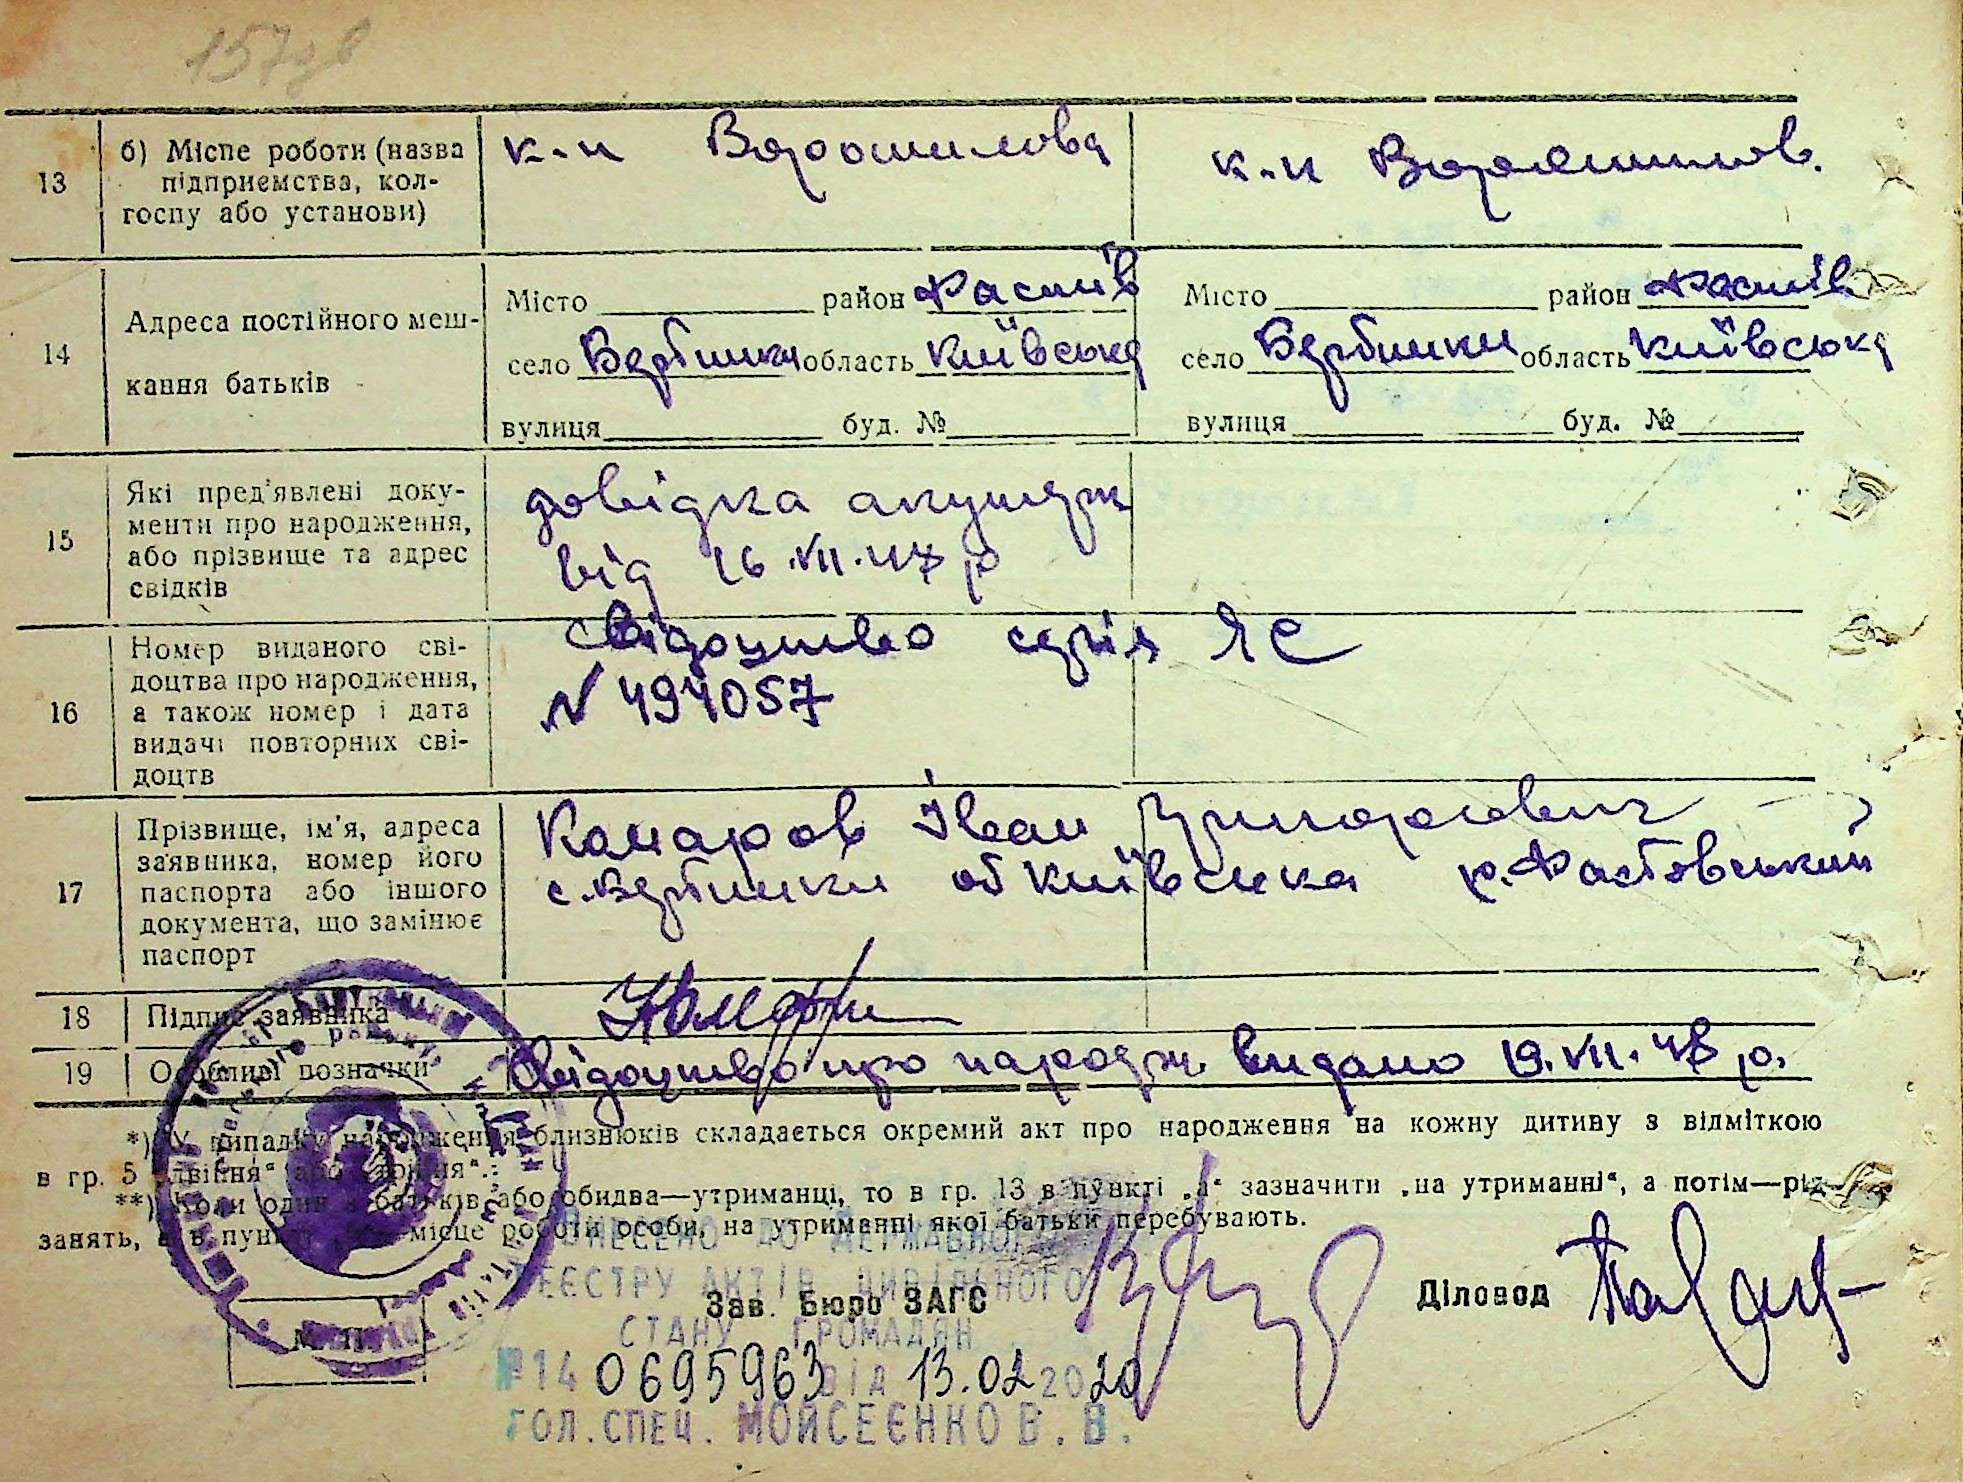 13
б) Місце роботи (назва
підприємства, кол-
госпу або установи)
к-п Ворошилова
к-п Ворошилов.
14
Адреса постійного меш-
кання батьків
Місто район Фастів
село область Київська
вулиця буд. №
Місто район Фастів
село область Київська
вулиця буд. №
15
Які пред'явлені доку-
менти про народження,
або прізвище та адрес
свідків
довідка
від 16.VII.47 р
16
Номер виданого сві-
доцтва про народження,
а також номер і дата
видачі повторних сві-
доцтв
свідоцтво серія ЯС
N 494057
17
Прізвище, ім'я, адреса
заявника, номер його
паспорта або іншого
документа, що замінює
паспорт
Комаров Іван Григорович
с. об Київська р. Фастовський
18
Підпис заявника
19
Особливі позначки
Свідоцтво про народж. видано 19.VII.47 р.
*) У випадку народження близнюків складається окремий акт про народження на кожну дитину з відміткою
в гр. 5 „двійня“ або „трійня“.
**) Коли один з батьків або обидва—утриманці, то в гр. 13 в пункті „а“ зазначити „на утриманні“, а потім—рід
занять, а в пункті місце роботи особи, на утриманні якої батьки перебувають.
ВНЕСЕНО ДО ДЕРЖАВНОГО
РЕЄСТРУ АКТІВ ЦИВІЛЬНОГО
Зав. Бюро ЗАГС
Діловод
СТАНУ ГРОМАДЯН
М. П.
№14 0695963 від 13.02 2020
ГОЛ. СПЕЦ. МОЙСЕЄНКО В. В.